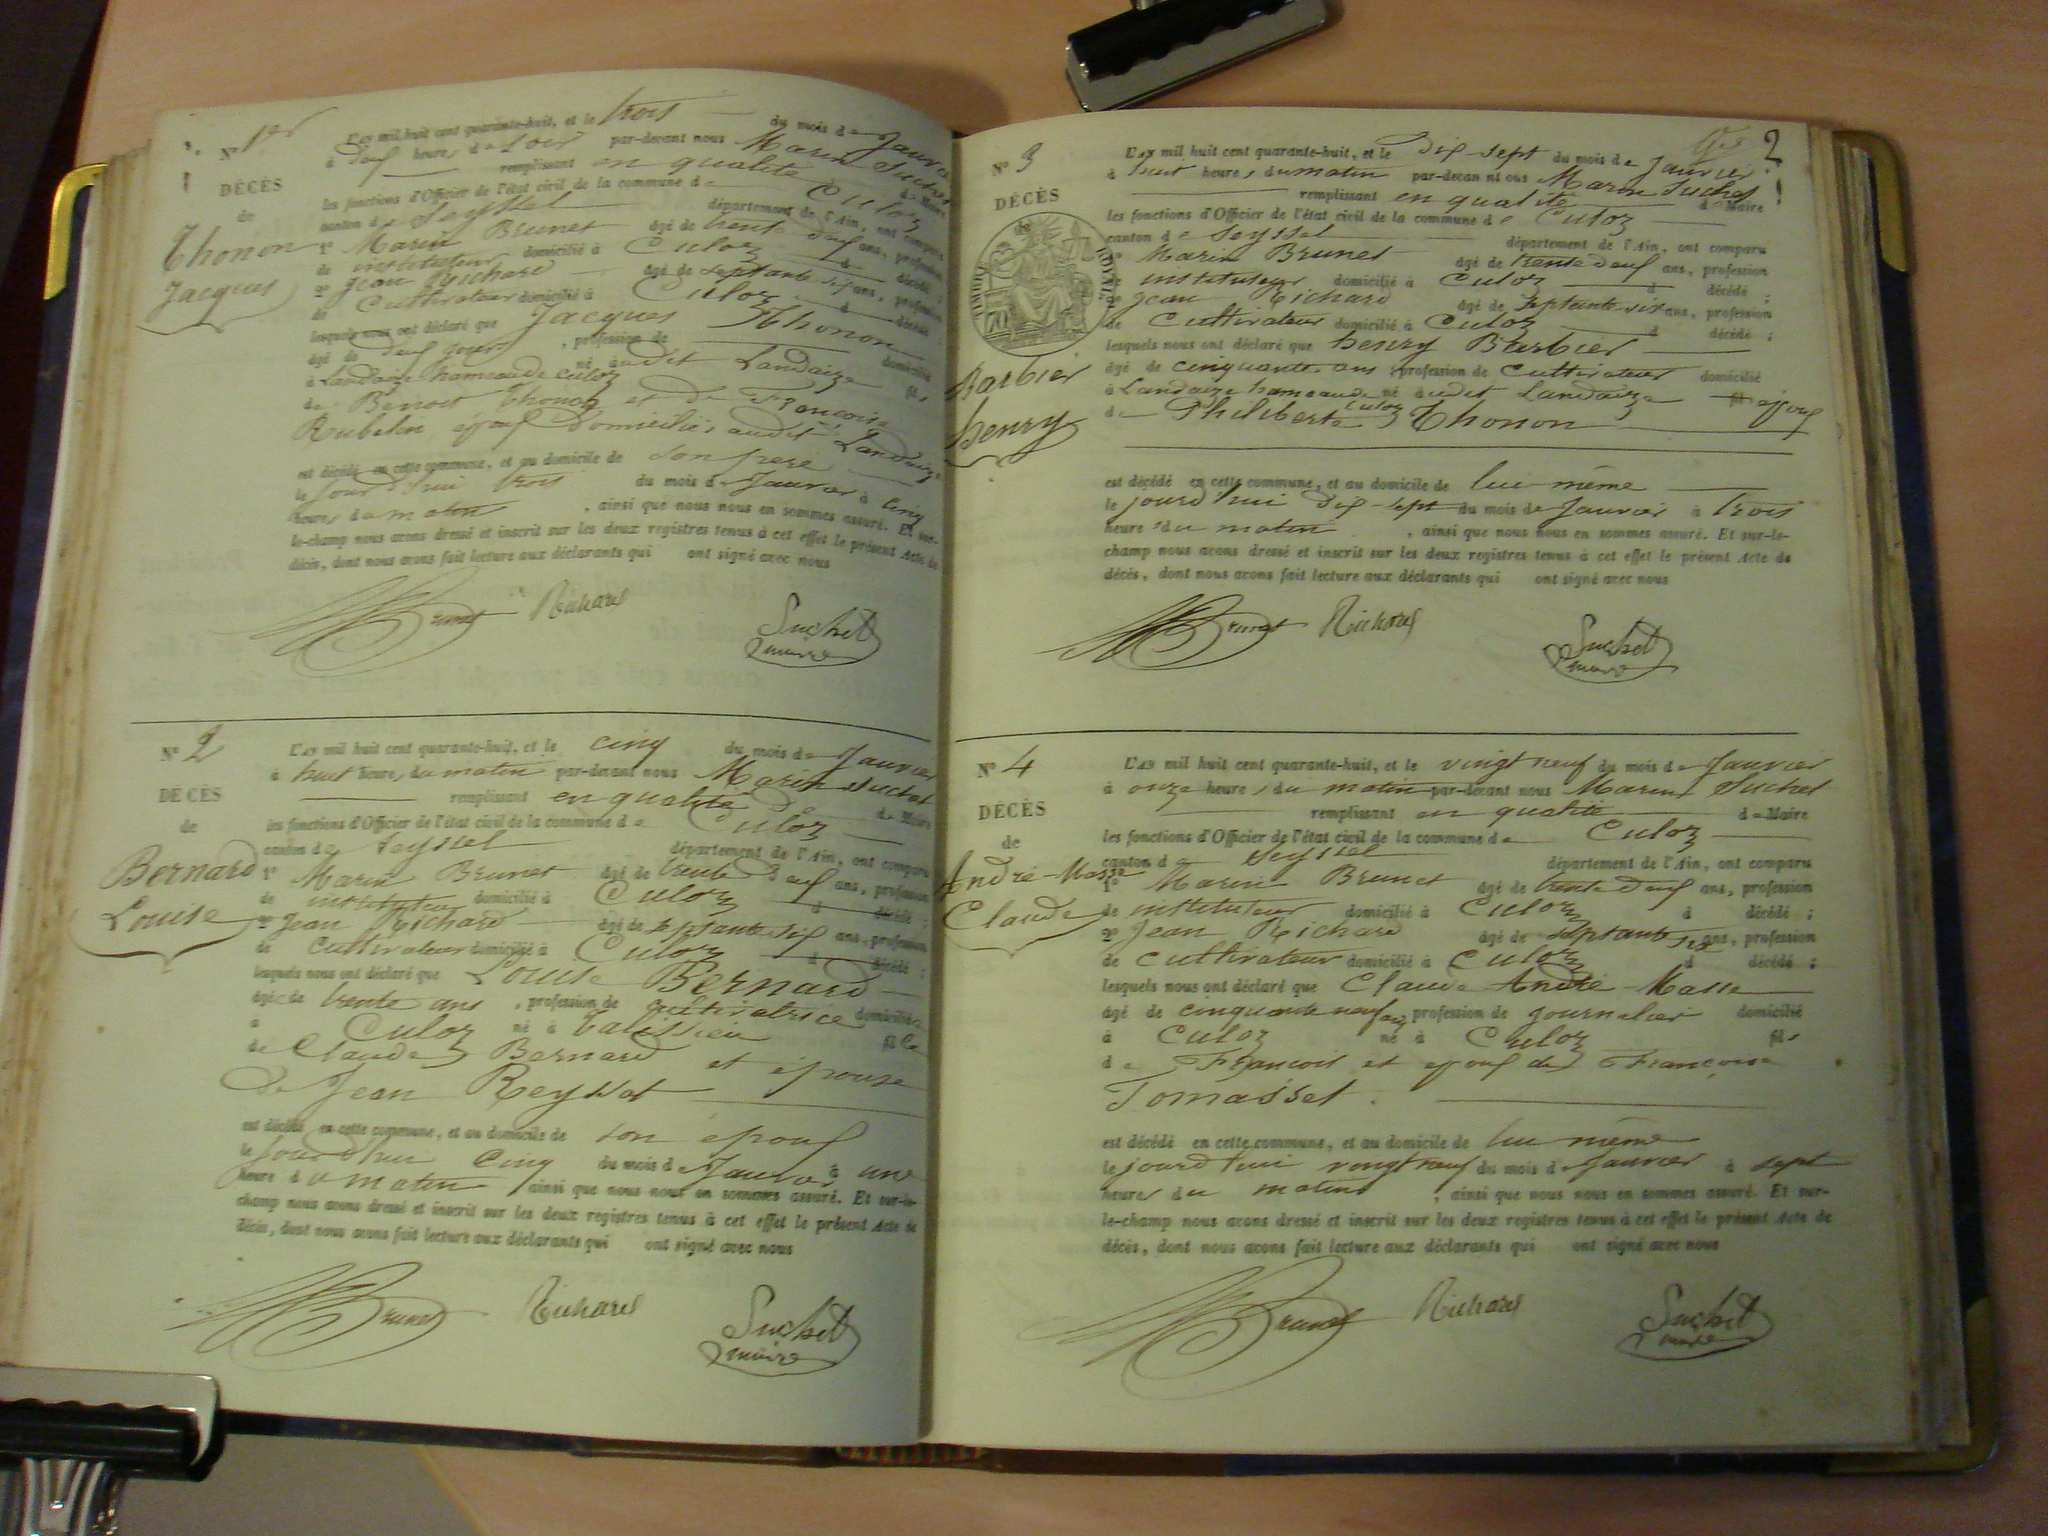 N° 1er
DÉCÈS
de
Thonon
Jacques
L'AN mil huit cent quarante-huit, et le trois du mois de Janvier
à deux heures de soir par-devant nous Marin Suchet
remplissant en qualité de Maire
les fonctions d'Officier de l'état civil de la commune de Culoz
canton de Seyssel département de l'Ain, ont comparu
1° Marin Brunet âgé de trente deux ans, profession
de instituteur domicilié à Culoz d décédé ;
2° Jean Richard âgé de septante six ans, profession
de Cultivateur domicilié à Culoz d décédé ;
lesquels nous ont déclaré que Jacques Thonon
âgé de deux jours, profession de domicilié
à Landaize hameau de Culoz né audit Landaize fils
de Benoit Thonon et de Françoise
Rubelin époux Domiciliés audit Landaize
est décédé en cette commune, et au domicile de son père
le jourd'hui trois du mois de Janvier à cinq
heures du matin, ainsi que nous nous en sommes assuré. Et sur-
le-champ nous avons dressé et inscrit sur les deux registres tenus à cet effet le présent Acte de
décès, dont nous avons fait lecture aux déclarants qui ont signé avec nous
Brunet Richard Suchet
maire
N° 2
DÉCÈS
de
Bernard
Louise
L'AN mil huit cent quarante-huit, et le cinq du mois de Janvier
à huit heures du matin par-devant nous Marin Suchet
remplissant en qualité de de Maire
les fonctions d'Officier de l'état civil de la commune de Culoz
canton de Seyssel département de l'Ain, ont comparu
1° Marin Brunet âgé de trente deux ans, profession
de instituteur domicilié à Culoz d décédé ;
2° Jean Richard âgé de septante six ans, profession
de Cultivateur domicilié à Culoz d décédé ;
lesquels nous ont déclaré que Louise Bernard
âgé de trente ans, profession de cultivatrice domiciliée
à Culoz né à Talissieu fille
de Claude Bernard et épouse
de Jean Reyssat
est décédé en cette commune, et au domicile de son époux
le jourd'hui cinq du mois de Janvier à une
heure du matin, ainsi que nous nous en sommes assuré. Et sur-le-
champ nous avons dressé et inscrit sur les deux registres tenus à cet effet le présent Acte de
décès, dont nous avons fait lecture aux déclarants qui ont signé avec nous
Brunet Richard Suchet
maire
2
N° 3
DÉCÈS
TIMBRE ROYAL
Barbier
henry
L'AN mil huit cent quarante-huit, et le Dix sept du mois de Janvier
à huit heures du matin par-devant nous Marin Suchet
remplissant en qualité de Maire
les fonctions d'Officier de l'état civil de la commune de Culoz
canton de Seyssel département de l'Ain, ont comparu
1° Marin Brunet âgé de trente deux ans, profession
de instituteur domicilié à Culoz d décédé ;
2° Jean Richard âgé de septante-six ans, profession
de Cultivateur domicilié à Culoz d décédé ;
lesquels nous ont déclaré que henry Barbier
âgé de cinquante ans, profession de cultivateur domicilié
à Landaize hameau de Culoz né audit Landaize fil époux
de Philiberte Thonon
est décédé en cette commune, et au domicile de lui même
le jourd'hui Dix-sept du mois de Janvier à trois
heures du matin, ainsi que nous nous en sommes assuré. Et sur-le-
champ nous avons dressé et inscrit sur les deux registres tenus à cet effet le présent Acte de
décès, dont nous avons fait lecture aux déclarants qui ont signé avec nous
Brunet Richard Suchet
maire
N° 4
DÉCÈS
de
André-Masse
Claude
L'AN mil huit cent quarante-huit, et le vingt neuf du mois de Janvier
à onze heures du matin par-devant nous Marin Suchet
remplissant en qualité de Maire
les fonctions d'Officier de l'état civil de la commune de Culoz
canton de Seyssel département de l'Ain, ont comparu
1° Marin Brunet âgé de trente deux ans, profession
de instituteur domicilié à Culoz d décédé ;
2° Jean Richard âgé de septante six ans, profession
de cultivateur domicilié à Culoz d décédé ;
lesquels nous ont déclaré que Claude André-Masse
âgé de cinquante neuf ans, profession de journalier domicilié
à Culoz né à Culoz fils
de François et époux de Françoise
Tomasset.
est décédé en cette commune, et au domicile de lui même
le jourd'hui vingt neuf du mois de Janvier à sept
heures du matin, ainsi que nous nous en sommes assuré. Et sur-
le-champ nous avons dressé et inscrit sur les deux registres tenus à cet effet le présent Acte de
décès, dont nous avons fait lecture aux déclarants qui ont signé avec nous
Brunet Richard Suchet
maire